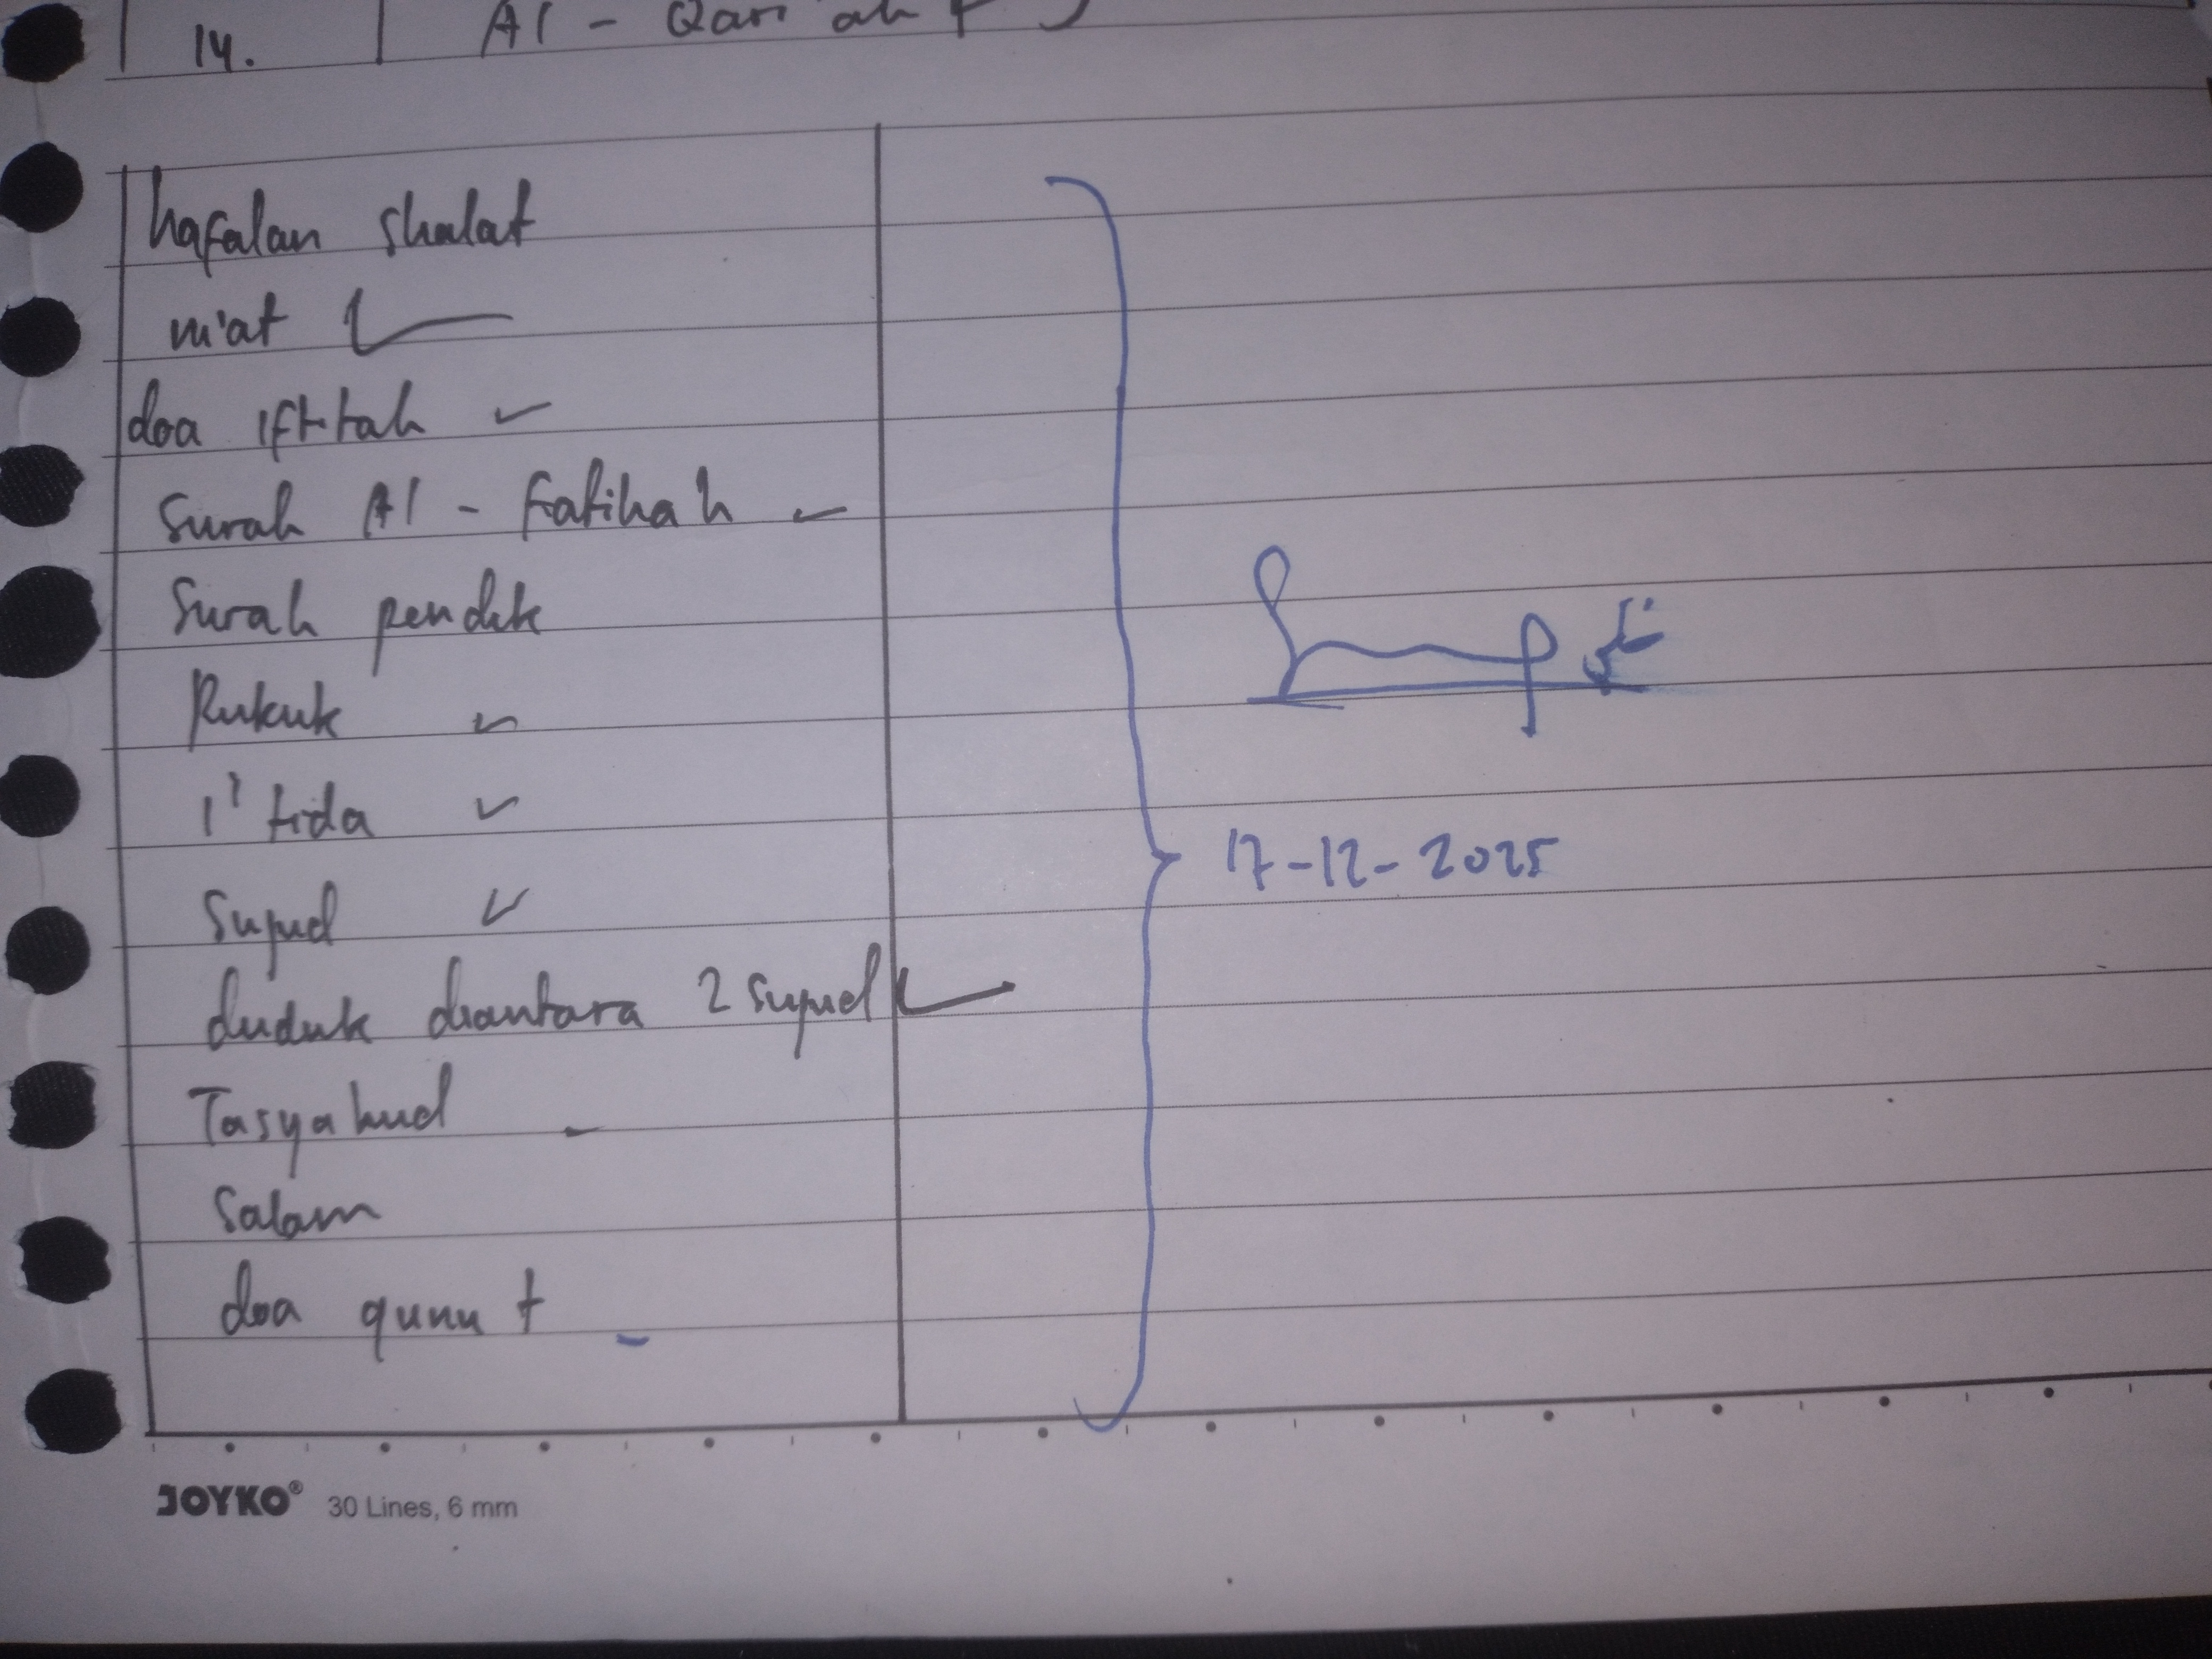 14. Al - Qari'ah
hafalan shalat
niat
doa iftitah ✓
Surah Al - Fatihah ✓
Surah pendek
Rukuk ✓
i'tida ✓
Sujud ✓
duduk diantara 2 sujud ✓
Tasyahud -
Salam
doa qunut -
17-12-2025
JOYKO® 30 Lines, 6 mm